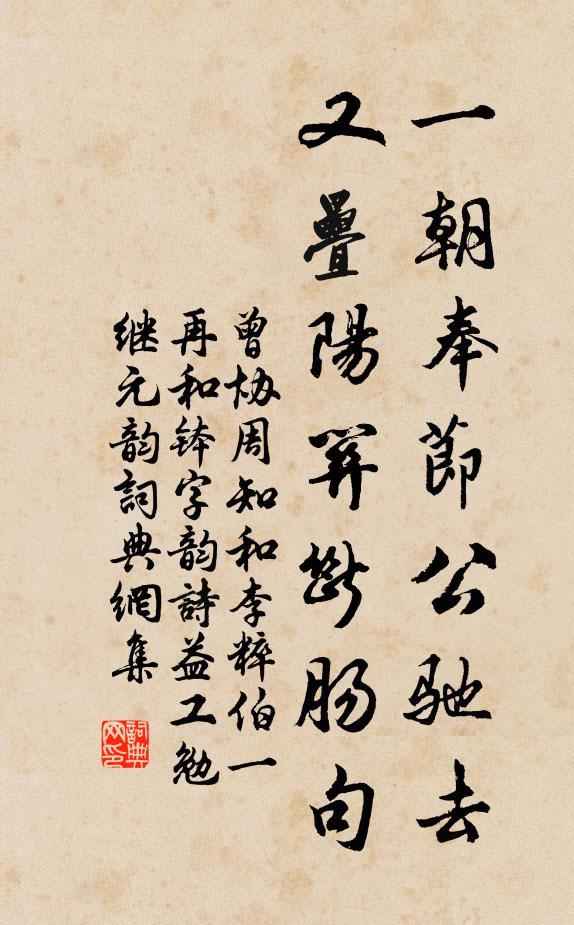 一朝奉節公馳去
又疊陽關斷腸句
曾协周知和李粹伯一
再和钵字韵詩益工勉
继元韵詞典網集
詞典网印